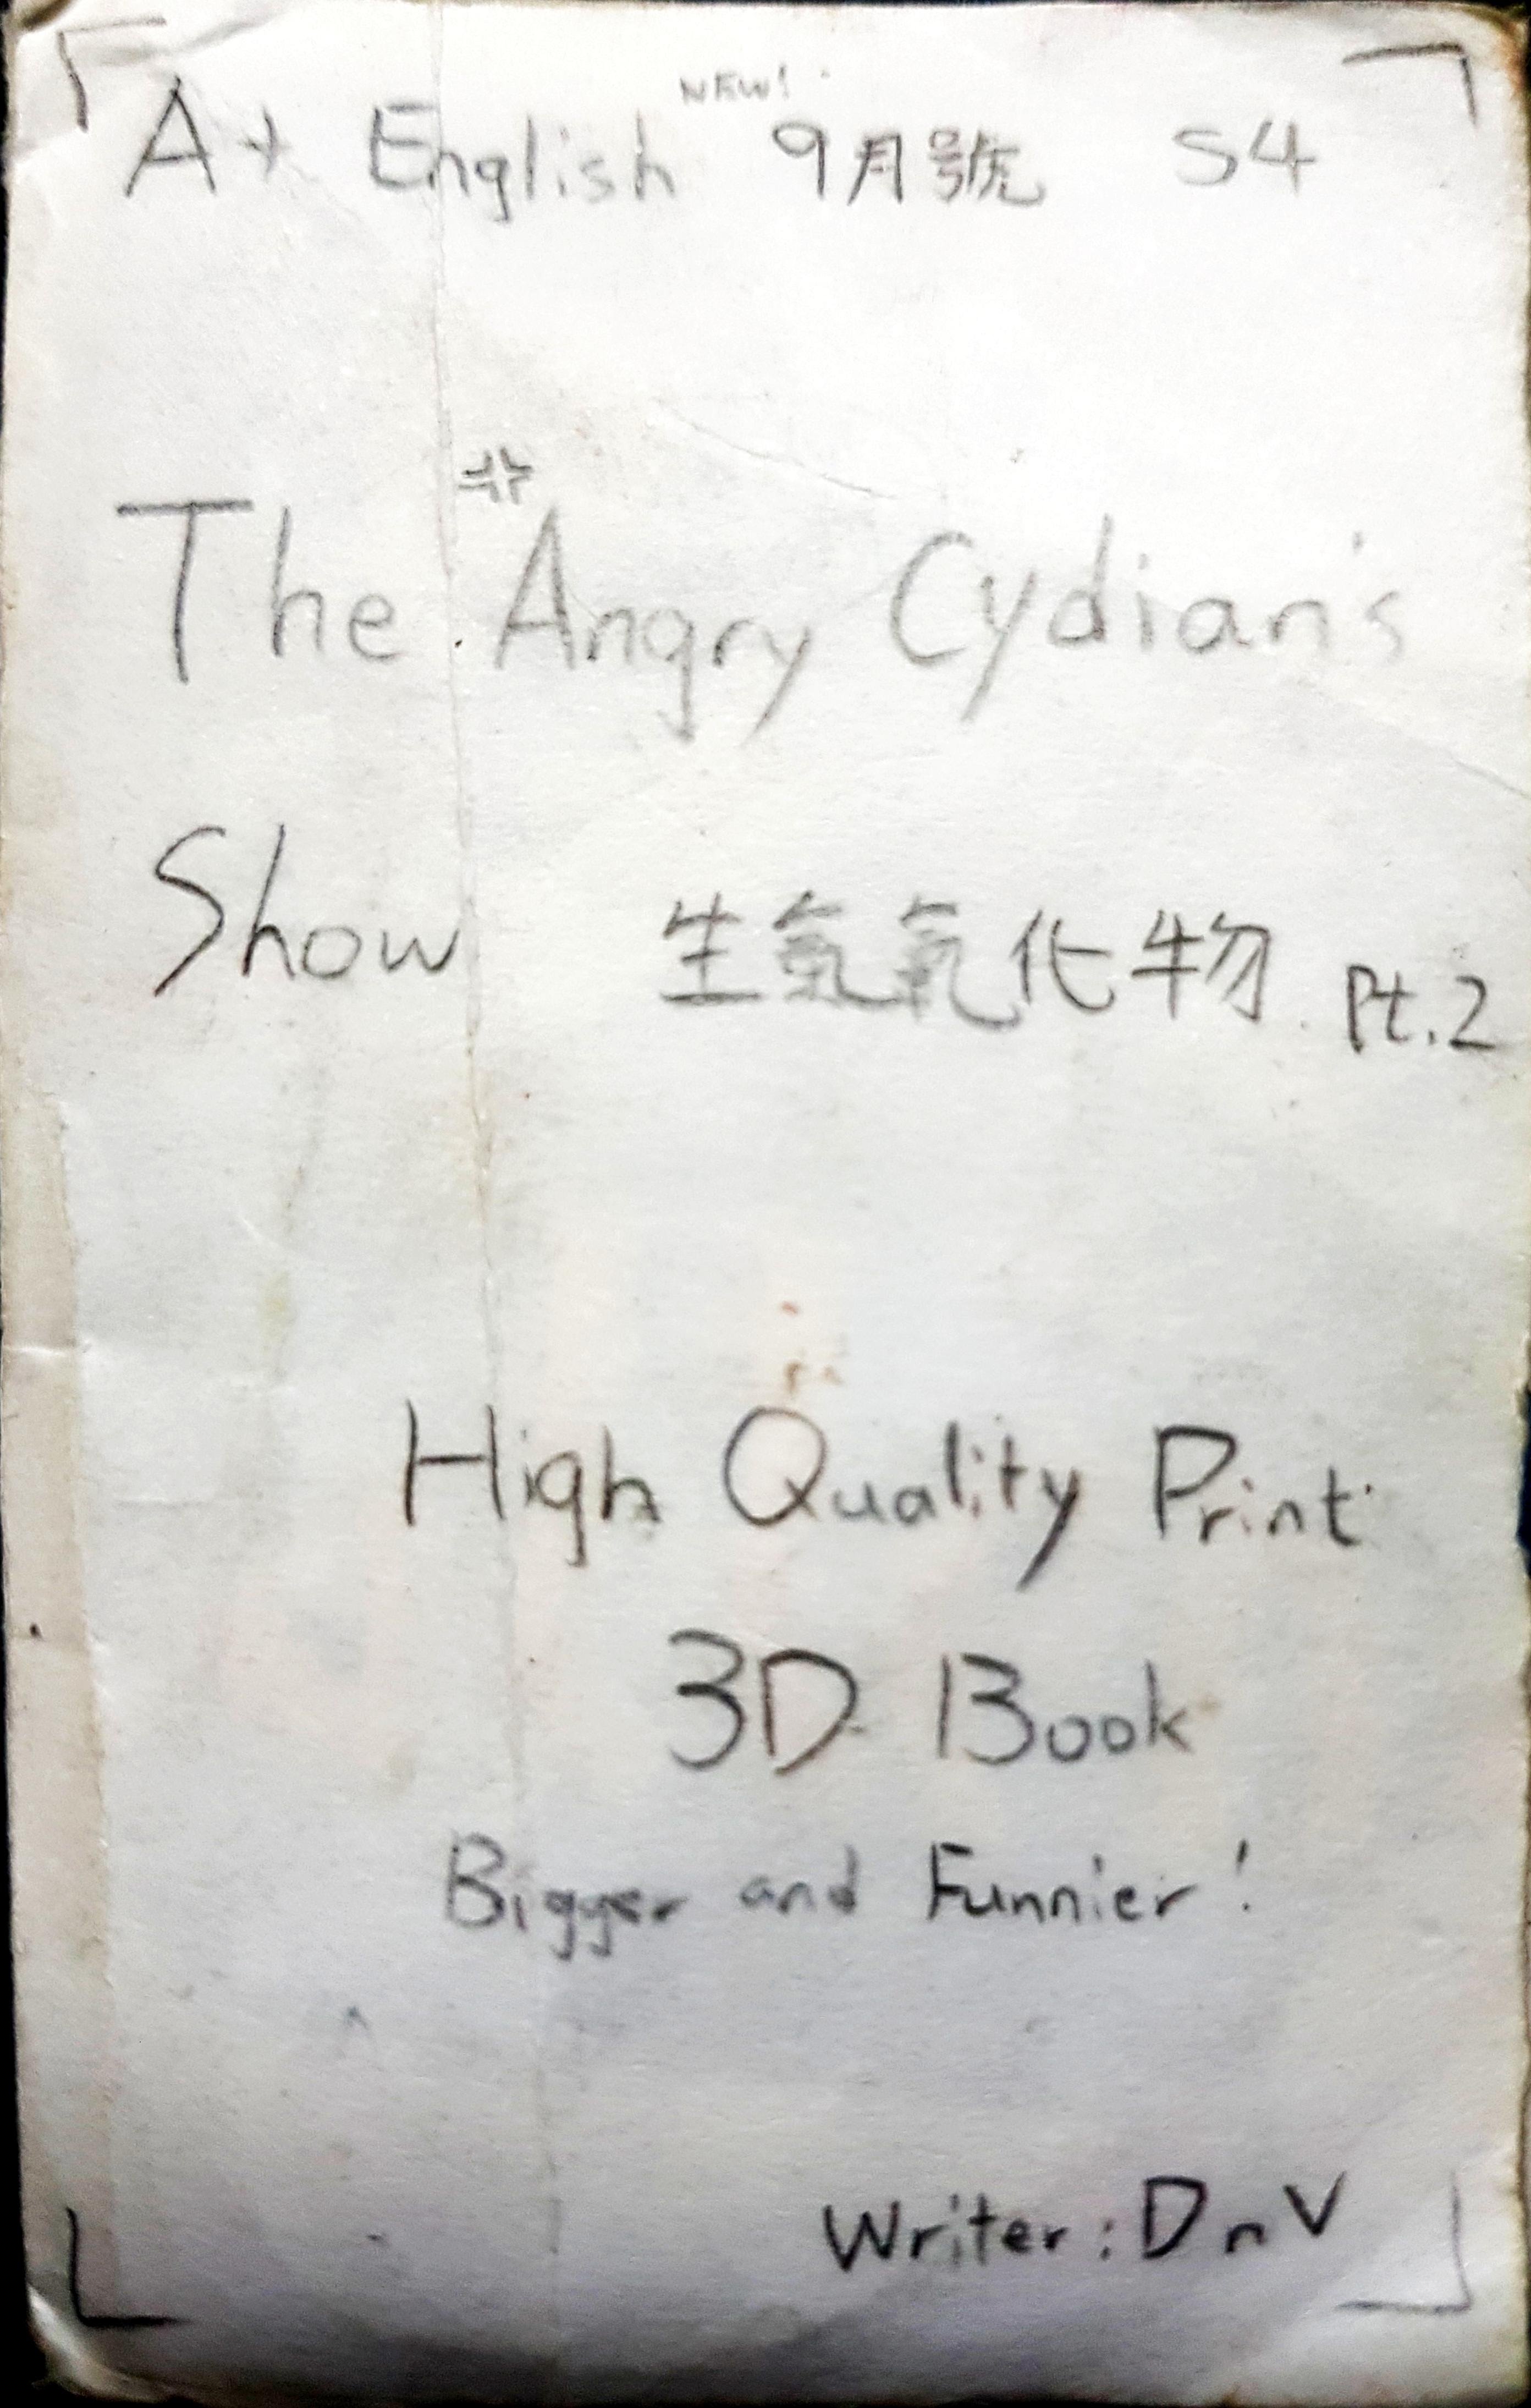 NEW!
A+ English 9月號 S4
The Angry Cydian's
Show 生氣氧化物 Pt.2
High Quality Print
3D Book
Bigger and Funnier!
Writer: DnV